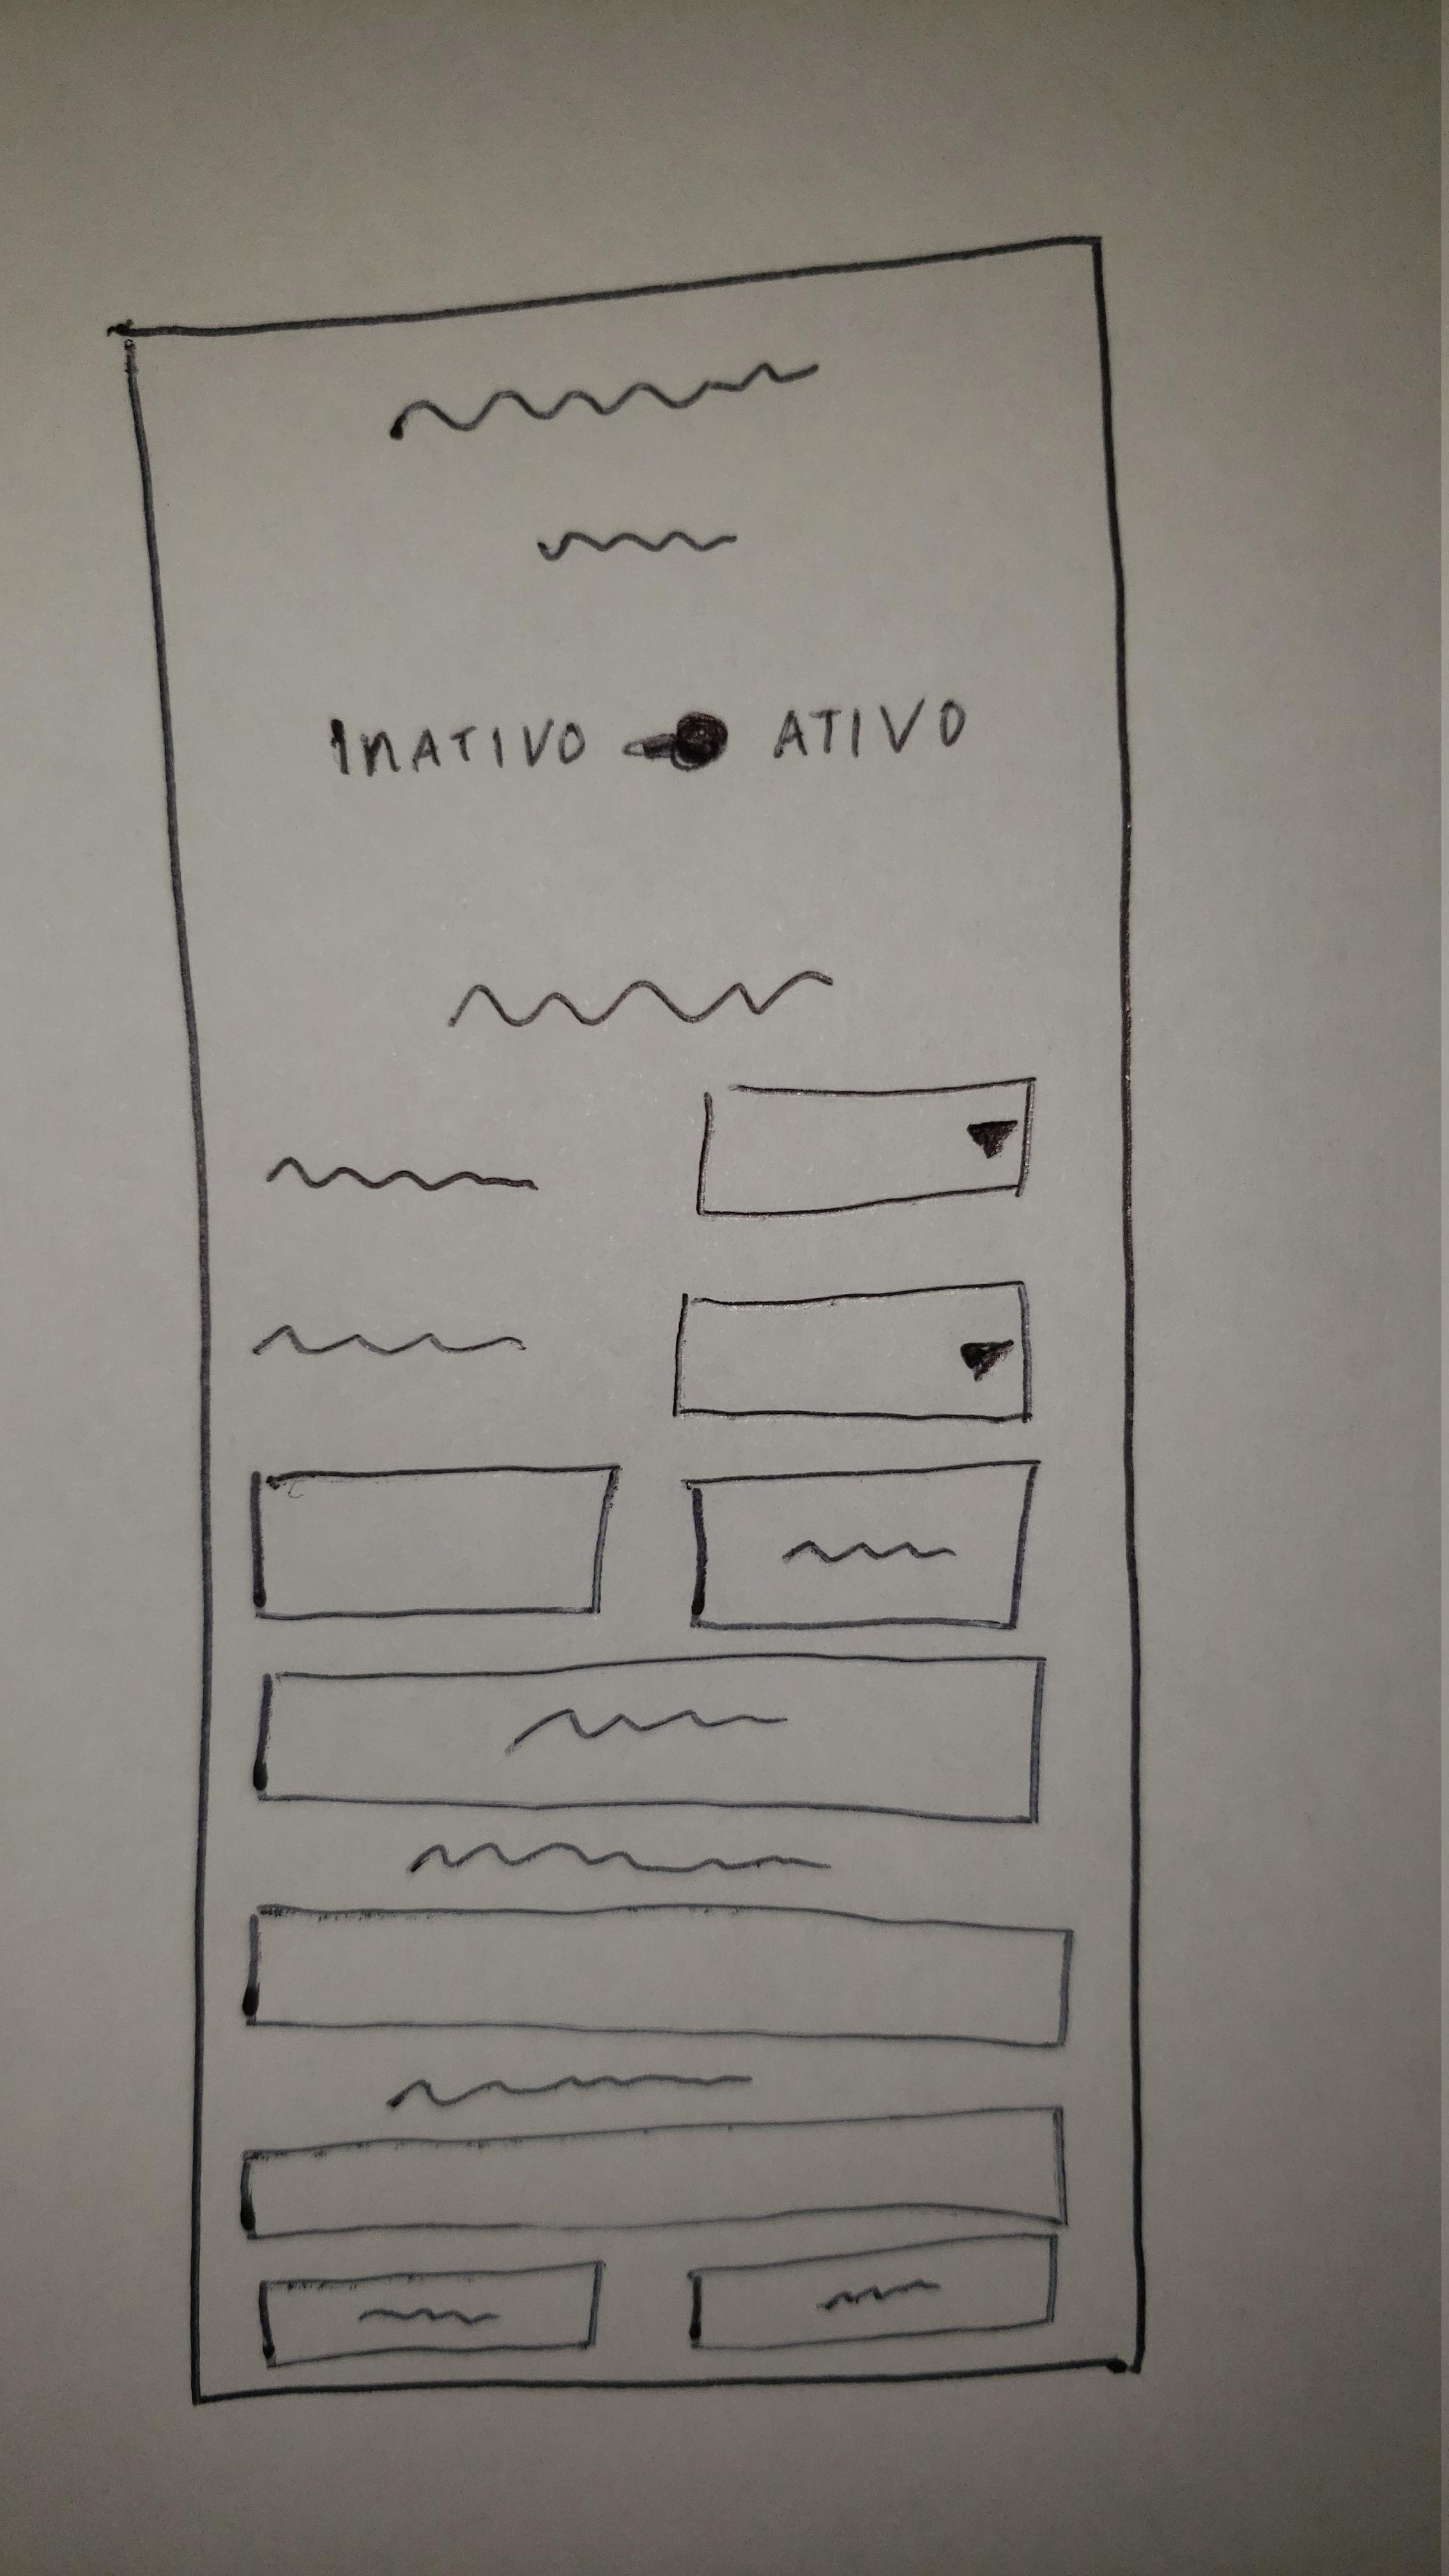 INATIVO ATIVO